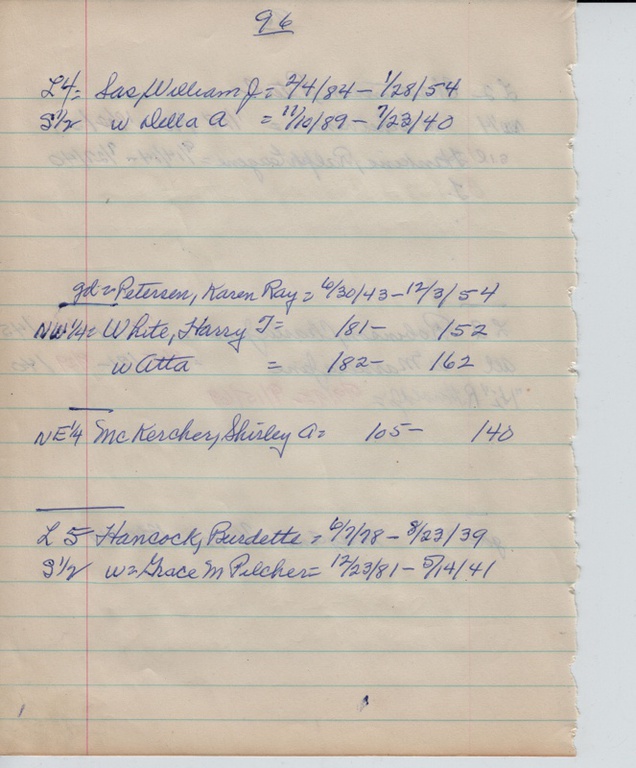 96
L4= Sas, William J = 2/4/84 - 1/28/54
S1/2 w Della A = 11/10/89 - 7/23/40
gd = Petersen, Karen Ray = 6/30/43 - 12/3/54
NW1/4 = White, Harry T = /81 - /52
w Atta = /82 - /62
NE1/4 McKercher, Shirley A = /05 - /40
L 5 Hancock, Burdette = 6/7/78 - 8/23/39
S1/2 w = Grace M Pilcher = 12/23/81 - 5/14/41